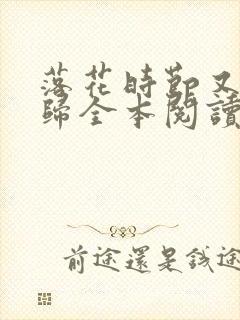 落花時節又
歸全本閱讀
前途還是錢途